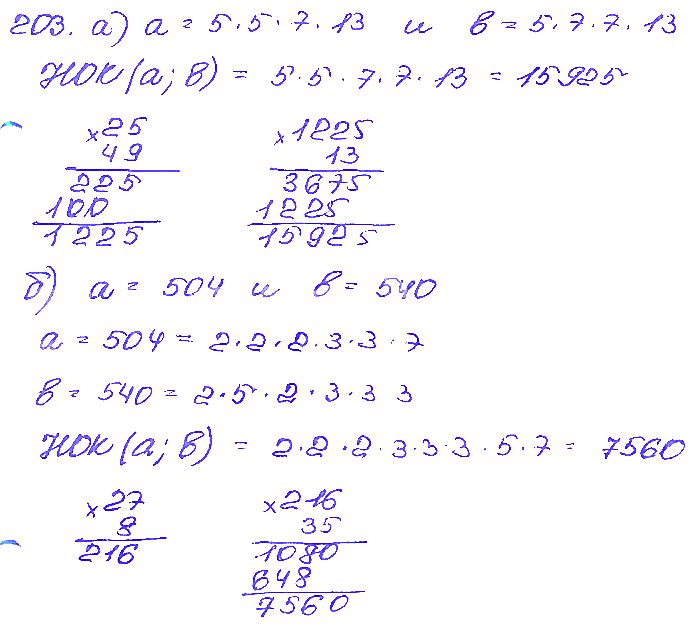 203. а) а = 5·5·7·13 и в = 5·7·7·13
НОК(а; в) = 5·5·7·7·13 = 15925
×25
49
225
100
1225
×1225
13
3675
1225
15925
б) а = 504 и в = 540
а = 504 = 2·2·2·3·3·7
в = 540 = 2·5·2·3·3 3
НОК(а; в) = 2·2·2·3·3·3·5·7 = 7560
×27
8
216
×216
35
1080
648
7560